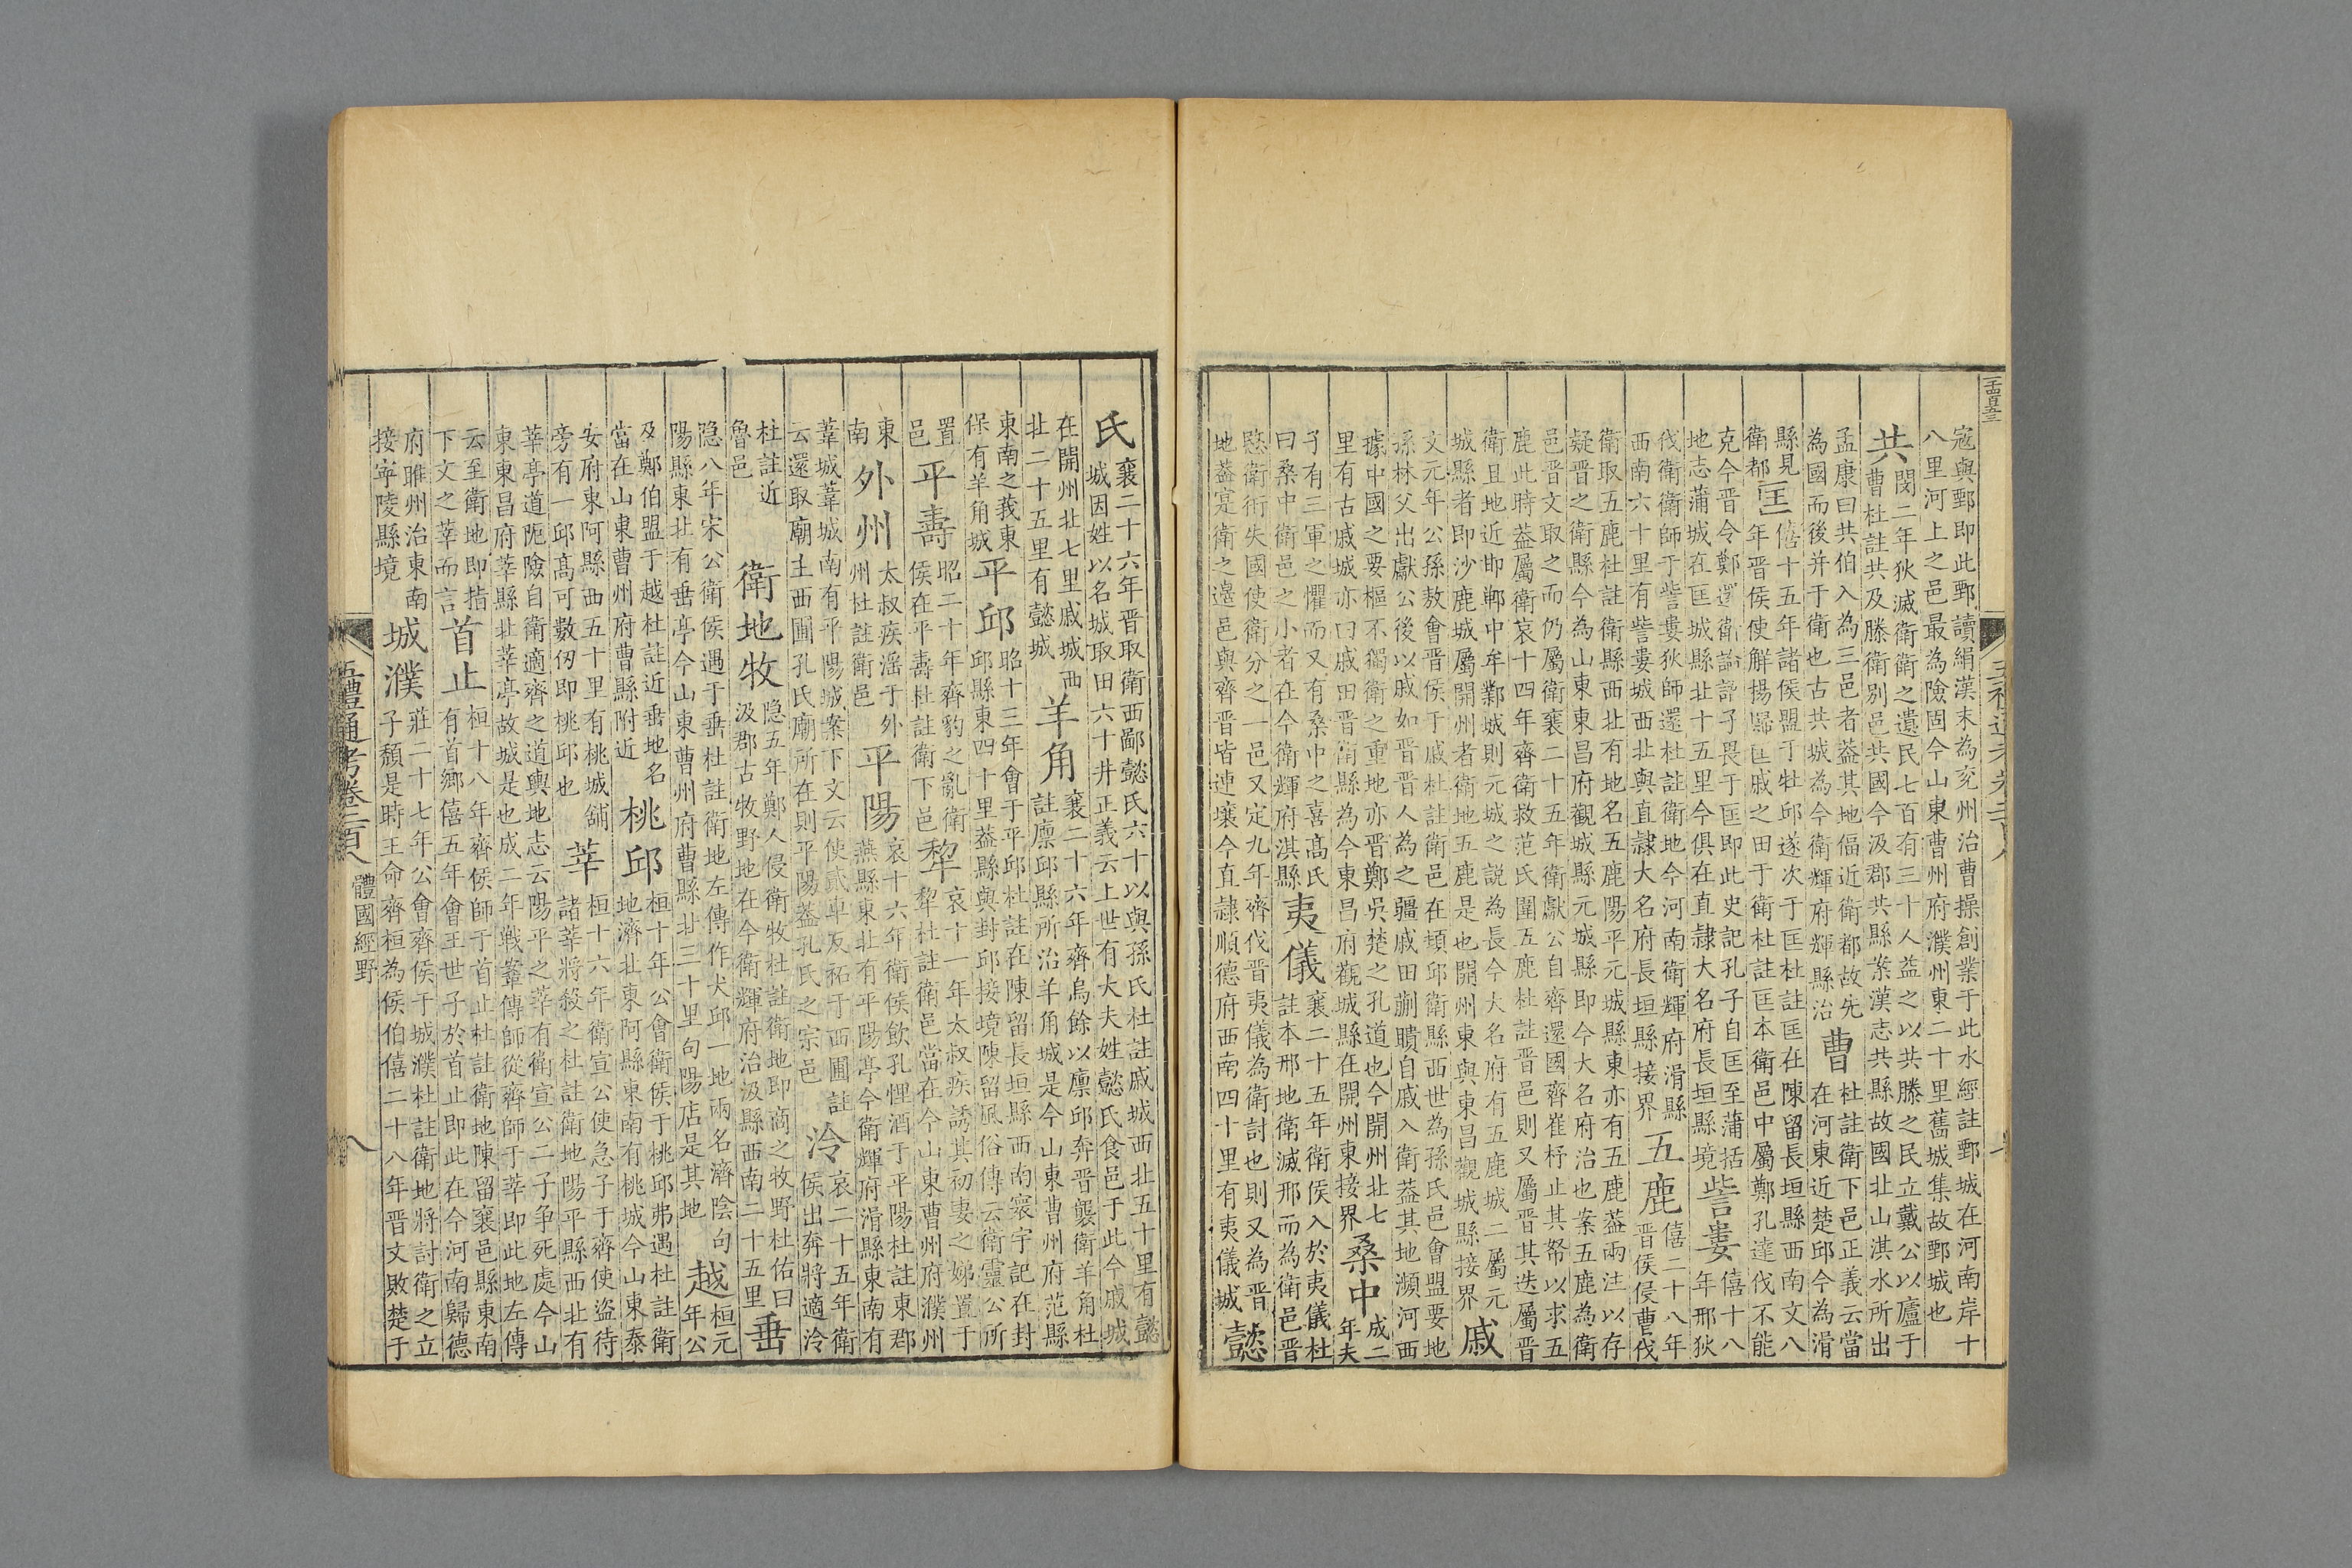 寇與鄄即此鄄讀絹漢末為兖州治曹操創業于此水經註鄄城在河南岸十
八里河上之邑最為險固今山東曹州府濮州東二十里舊城集故鄄城也
共閔二年狄滅衛衛之遺民七百有三十人益之以共滕之民立戴公以廬于
曹杜註共及滕衛別邑共國今汲郡共縣案漢志共縣故國北山淇水所出
孟康曰共伯入為三邑者葢其地偪近衛都故先
為國而後并于衛也古共城為今衛輝府輝縣治
曹杜註衛下邑正義云當
在河東近楚邱今為滑
縣見
衛都
匡僖十五年諸侯盟于牡邱遂次于匡杜註匡在陳留長垣縣西南文八
年晋侯使解揚歸匡戚之田于衛杜註匡本衛邑中屬鄭孔達伐不能
克今晋令鄭還衛論語子畏于匡即此史記孔子自匡至蒲括
地志蒲城在匡城縣北十五里今俱在直隸大名府長垣縣境
訾婁僖十八
年邢狄
伐衛衛師于訾婁狄師還杜註衛地今河南衛輝府滑縣
西南六十里有訾婁城西北與直隸大名府長垣縣接界
五鹿僖二十八年
晋侯侵曹伐
衛取五鹿杜註衛縣西北有地名五鹿陽平元城縣東亦有五鹿葢兩注以存
疑晋之衛縣今為山東東昌府觀城縣元城縣即今大名府治也案五鹿為衛
邑晋文取之而仍屬衛襄二十五年衛獻公自齊還國齊崔杼止其帑以求五
鹿此時葢屬衛哀十四年齊衛救范氏圍五鹿杜註晋邑則又屬晋其迭屬晋
衛且地近邯鄲中牟鄴城則元城之説為長今大名府有五鹿城二屬元
城縣者即沙鹿城屬開州者衛地五鹿是也開州東與東昌觀城縣接界
戚
文元年公孫敖會晋侯于戚杜註衛邑在頓邱衛縣西世為孫氏邑會盟要地
孫林父出獻公後以戚如晋晋人為之疆戚田蒯聵自戚入衛葢其地瀕河西
據中國之要樞不獨衛之重地亦晋鄭吳楚之孔道也今開州北七
里有古戚城亦曰戚田晋衛縣為今東昌府觀城縣在開州東接界
桑中成二
年夫
子有三軍之懼而又有桑中之喜髙氏
曰桑中衛邑之小者在今衛輝府淇縣
夷儀襄二十五年衛侯入於夷儀杜
註本邢地衛滅邢而為衛邑晋
愍衛衎失國使衛分之一邑又定九年齊伐晋夷儀為衛討也則又為晋
地葢寔衛之邊邑與齊晋皆連壤今直隷順德府西南四十里有夷儀城
懿
氏襄二十六年晋取衛西鄙懿氏六十以與孫氏杜註戚城西北五十里有懿
城因姓以名城取田六十井正義云上世有大夫姓懿氏食邑于此今戚城
在開州北七里戚城西
北二十五里有懿城
羊角襄二十六年齊烏餘以廪邱奔晋襲衛羊角杜
註廪邱縣所治羊角城是今山東曹州府范縣
東南之莪東
保有羊角城
平邱昭十三年會于平邱杜註在陳留長垣縣西南寰宇記在封
邱縣東四十里葢縣與封邱接境陳留風俗傳云衛靈公所
置
邑
平壽昭二十年齊豹之亂衛
侯在平壽杜註衛下邑
犂哀十一年太叔疾誘其初妻之娣置于
犂杜註衛邑當在今山東曹州府濮州
東
南
外州太叔疾淫于外
州杜註衛邑
平陽哀十六年衛侯飲孔悝酒于平陽杜註東郡
燕縣東北有平陽亭今衛輝府滑縣東南有
葦城葦城南有平陽城案下文云使貳車反祏于西圃註
云還取廟主西圃孔氏廟所在則平陽葢孔氏之宗邑
泠哀二十五年衛
侯出奔將適泠
杜註近
魯邑
衛地牧隐五年鄭人侵衛牧杜註衛地即商之牧野杜佑曰
汲郡古牧野地在今衛輝府治汲縣西南二十五里
垂
隐八年宋公衛侯遇于垂杜註衛地左傳作犬邱一地兩名濟陰句
陽縣東北有垂亭今山東曹州府曹縣北三十里句陽店是其地
越桓元
年公
及鄭伯盟于越杜註近垂地名
當在山東曹州府曹縣附近
桃邱桓十年公會衛侯于桃邱弗遇杜註衛
地濟北東阿縣東南有桃城今山東泰
安府東阿縣西五十里有桃城鋪
旁有一邱髙可數仞即桃邱也
莘桓十六年衛宣公使急子于齊使盗待
諸莘將殺之杜註衛地陽平縣西北有
莘亭道阨險自衛適齊之道輿地志云陽平之莘有衛宣公二子争死處今山
東東昌府莘縣北莘亭故城是也成二年戰鞌傳師從齊師于莘即此地左傳
云至衛地即指
下文之莘而言
首止桓十八年齊侯師于首止杜註衛地陳留襄邑縣東南
有首鄉僖五年會王世子於首止即此在今河南歸德
府睢州治東南
接寧陵縣境
城濮莊二十七年公會齊侯于城濮杜註衛地將討衛之立
子頽是時王命齊桓為侯伯僖二十八年晋文敗楚于
五禮通考卷二百八 體國經野 八